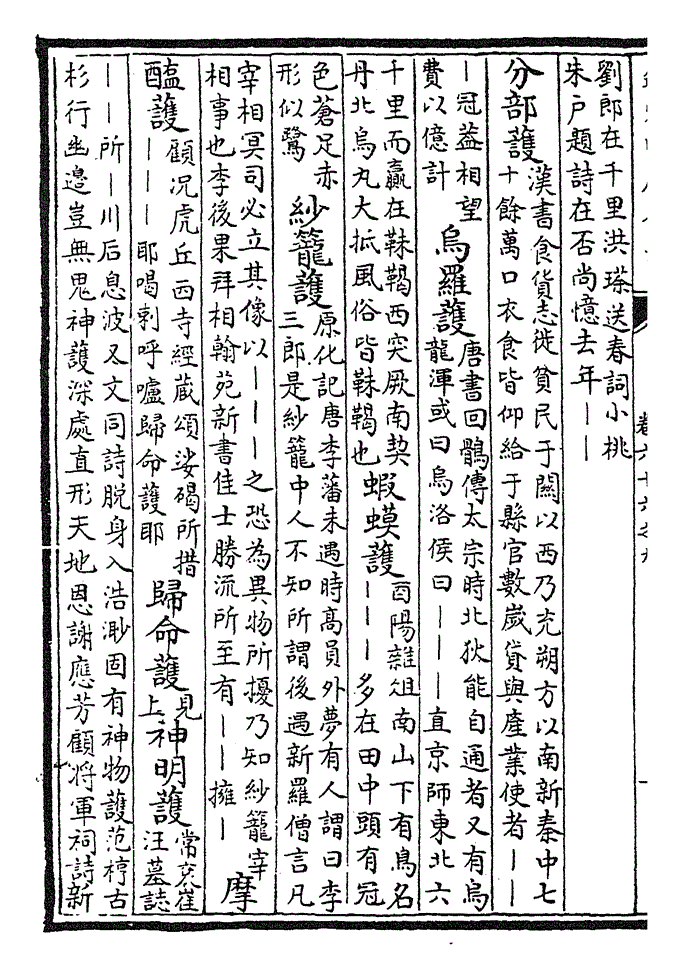 劉郎在千里洪瑹送春詞小桃
朱戶題詩在否尚憶去年｜｜
分部護
漢書食貨志徙貧民于關以西乃充朔方以南新秦中七
十餘萬口衣食皆仰給于縣官數歲貸與產業使者｜｜
｜冠葢相望
費以億計
烏羅護
唐書回鶻傳太宗時北狄能自通者又有烏
龍渾或曰烏洛侯曰｜｜｜直京師東北六
千里而贏在靺鞨西突厥南契
丹北烏丸大抵風俗皆靺鞨也
蝦蟆護
酉陽雜俎南山下有鳥名
｜｜｜多在田中頭有冠
色蒼足赤
形似鷺
紗籠護
原化記唐李藩未遇時髙員外夢有人謂曰李
三郎是紗籠中人不知所謂後遇新羅僧言凡
宰相冥司必立其像以｜｜｜之恐為異物所擾乃知紗籠宰
相事也李後果拜相翰苑新書佳士勝流所至有｜｜擁｜
摩
醯護
顧况虎丘西寺經蔵頌娑碣所措
｜｜｜耶喝剌呼嚧歸命護耶
歸命護
見
上
神明護
常衮崔
汪墓誌
｜｜所｜川后息波又文同詩脫身入浩渺固有神物護范梈古
杉行幽邉豈無鬼神護深處直形天地恩謝應芳顧將軍祠詩新